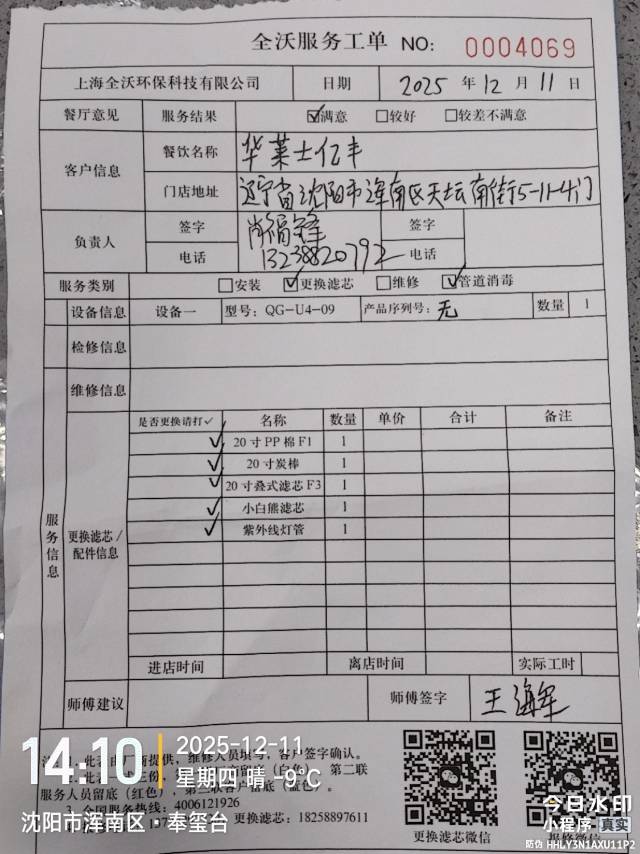 全沃服务工单 NO: 0004069
上海全沃环保科技有限公司 日期 2025 年 12 月 11 日
餐厅意见 服务结果 ☑满意 □较好 □较差不满意
客户信息 餐饮名称 华莱士亿丰
门店地址 辽宁省沈阳市浑南区天坛南街5-11-4门
负责人 签字 肖福锋 签字
电话 13238820792 电话
服务类别 □安装 ☑更换滤芯 □维修 ☑管道消毒
设备信息 设备一 型号: QG-U4-09 产品序列号: 无 数量 1
检修信息
维修信息
服务信息
更换滤芯/配件信息
是否更换请打✓ 名称 数量 单价 合计 备注
✓ 20寸PP棉F1 1
✓ 20寸炭棒 1
✓ 20寸叠式滤芯F3 1
✓ 小白熊滤芯 1
✓ 紫外线灯管 1
进店时间 离店时间 实际工时
师傅建议 师傅签字 王海军
提供，维修人员填写，客户签字确认。
第二联
服务人员留底（红色），
3、全国服务热线：4006121926
18258897611
更换滤芯微信
14:10
2025-12-11
星期四 晴 -9℃
沈阳市浑南区·奉玺台
今日水印
小程序 真实
防伪 HHLY3N1AXU11P2